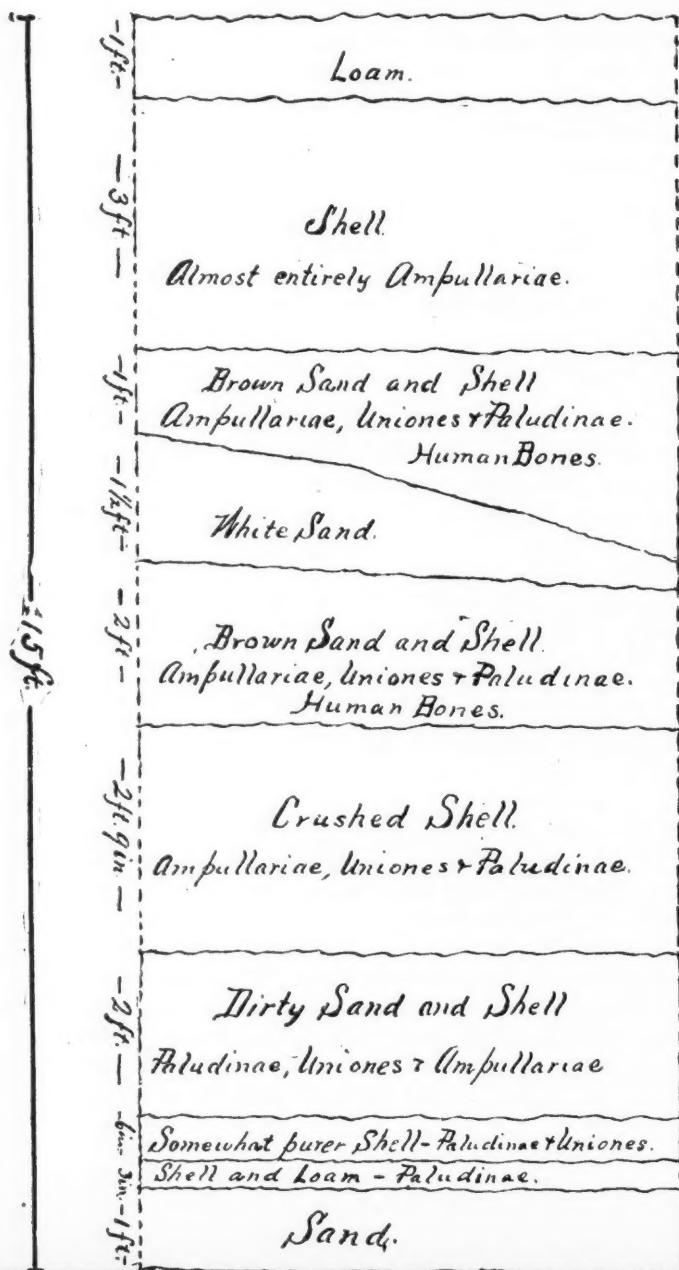 -1ft.-
Loam.
-3ft-
Shell.
Almost entirely Ampullariae.
-1ft-
Brown Sand and Shell
Ampullariae, Uniones & Paludinae.
Human Bones.
-1½ft-
White Sand.
15ft.
-2ft-
Brown Sand and Shell.
Ampullariae, Uniones & Paludinae.
Human Bones.
-2ft. 9in.-
Crushed Shell.
Ampullariae, Uniones & Paludinae.
-2ft.-
Dirty Sand and Shell
Paludinae, Uniones & Ampullariae
-6in-
Somewhat purer Shell-Paludinae & Uniones.
3in.
Shell and Loam - Paludinae.
-1ft-
Sand.